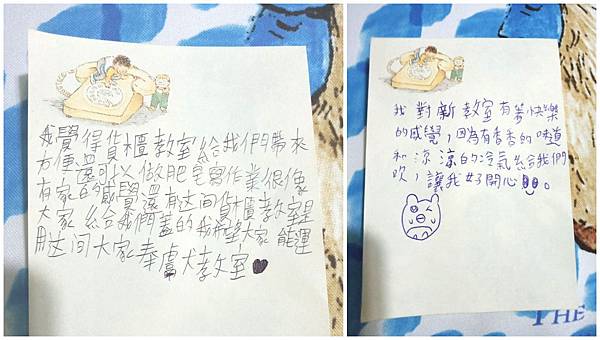 我覺得貨櫃教室給我們帶來
方便,還可以做肥皂寫作業很像
有家的感覺還有这间货櫃教室是
大家給我們蓋的我希望大家能運
用这间大家奉膚犬教室
我對新教室有著快樂
的感覺,因為有香香的味道
和涼涼的冷氣給我們
吹,讓我好開心。
THE